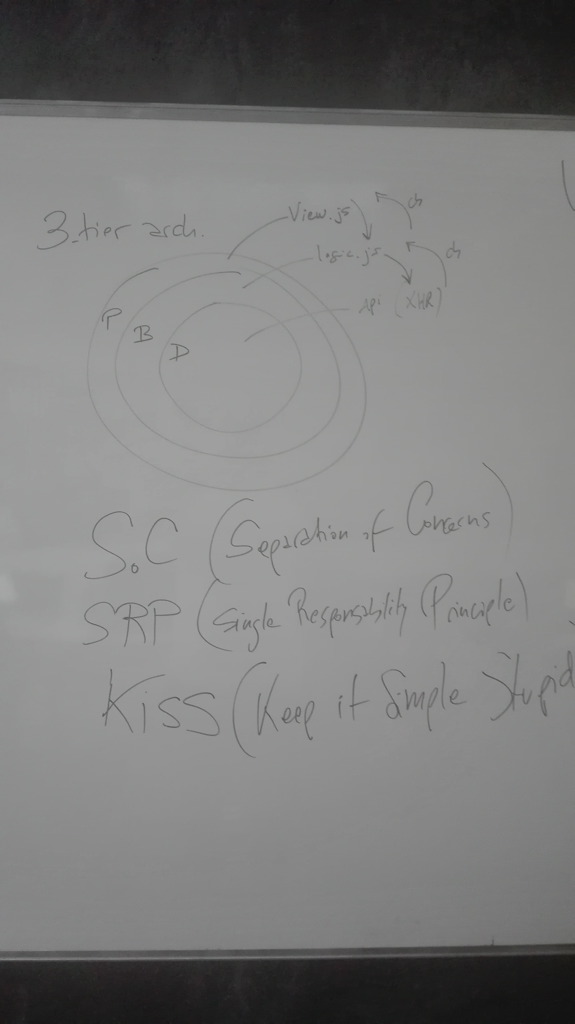 3-tier arch.
View.js
cb
logic.js
cb
Api (XHR)
P
B
D
SoC (Separation of Concerns)
SRP (Single Responsability Principle)
KiSS (Keep it Simple Stupid